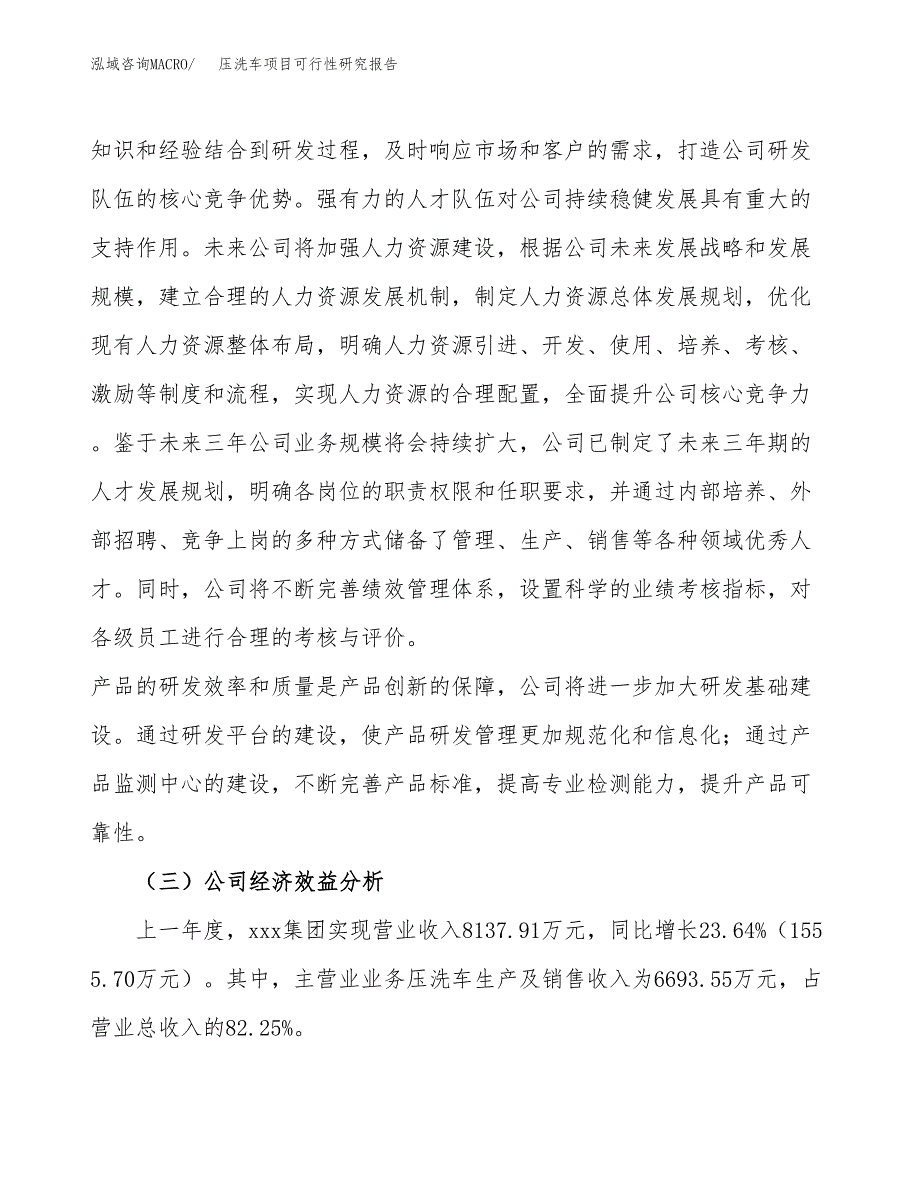 泓域咨询MACRO/ 压洗车项目可行性研究报告
知识和经验结合到研发过程，及时响应市场和客户的需求，打造公司研发
队伍的核心竞争优势。强有力的人才队伍对公司持续稳健发展具有重大的
支持作用。未来公司将加强人力资源建设，根据公司未来发展战略和发展
规模，建立合理的人力资源发展机制，制定人力资源总体发展规划，优化
现有人力资源整体布局，明确人力资源引进、开发、使用、培养、考核、
激励等制度和流程，实现人力资源的合理配置，全面提升公司核心竞争力
。鉴于未来三年公司业务规模将会持续扩大，公司已制定了未来三年期的
人才发展规划，明确各岗位的职责权限和任职要求，并通过内部培养、外
部招聘、竞争上岗的多种方式储备了管理、生产、销售等各种领域优秀人
才。同时，公司将不断完善绩效管理体系，设置科学的业绩考核指标，对
各级员工进行合理的考核与评价。
产品的研发效率和质量是产品创新的保障，公司将进一步加大研发基础建
设。通过研发平台的建设，使产品研发管理更加规范化和信息化；通过产
品监测中心的建设，不断完善产品标准，提高专业检测能力，提升产品可
靠性。
（三）公司经济效益分析
上一年度，xxx集团实现营业收入8137.91万元，同比增长23.64%（155
5.70万元）。其中，主营业业务压洗车生产及销售收入为6693.55万元，占
营业总收入的82.25%。